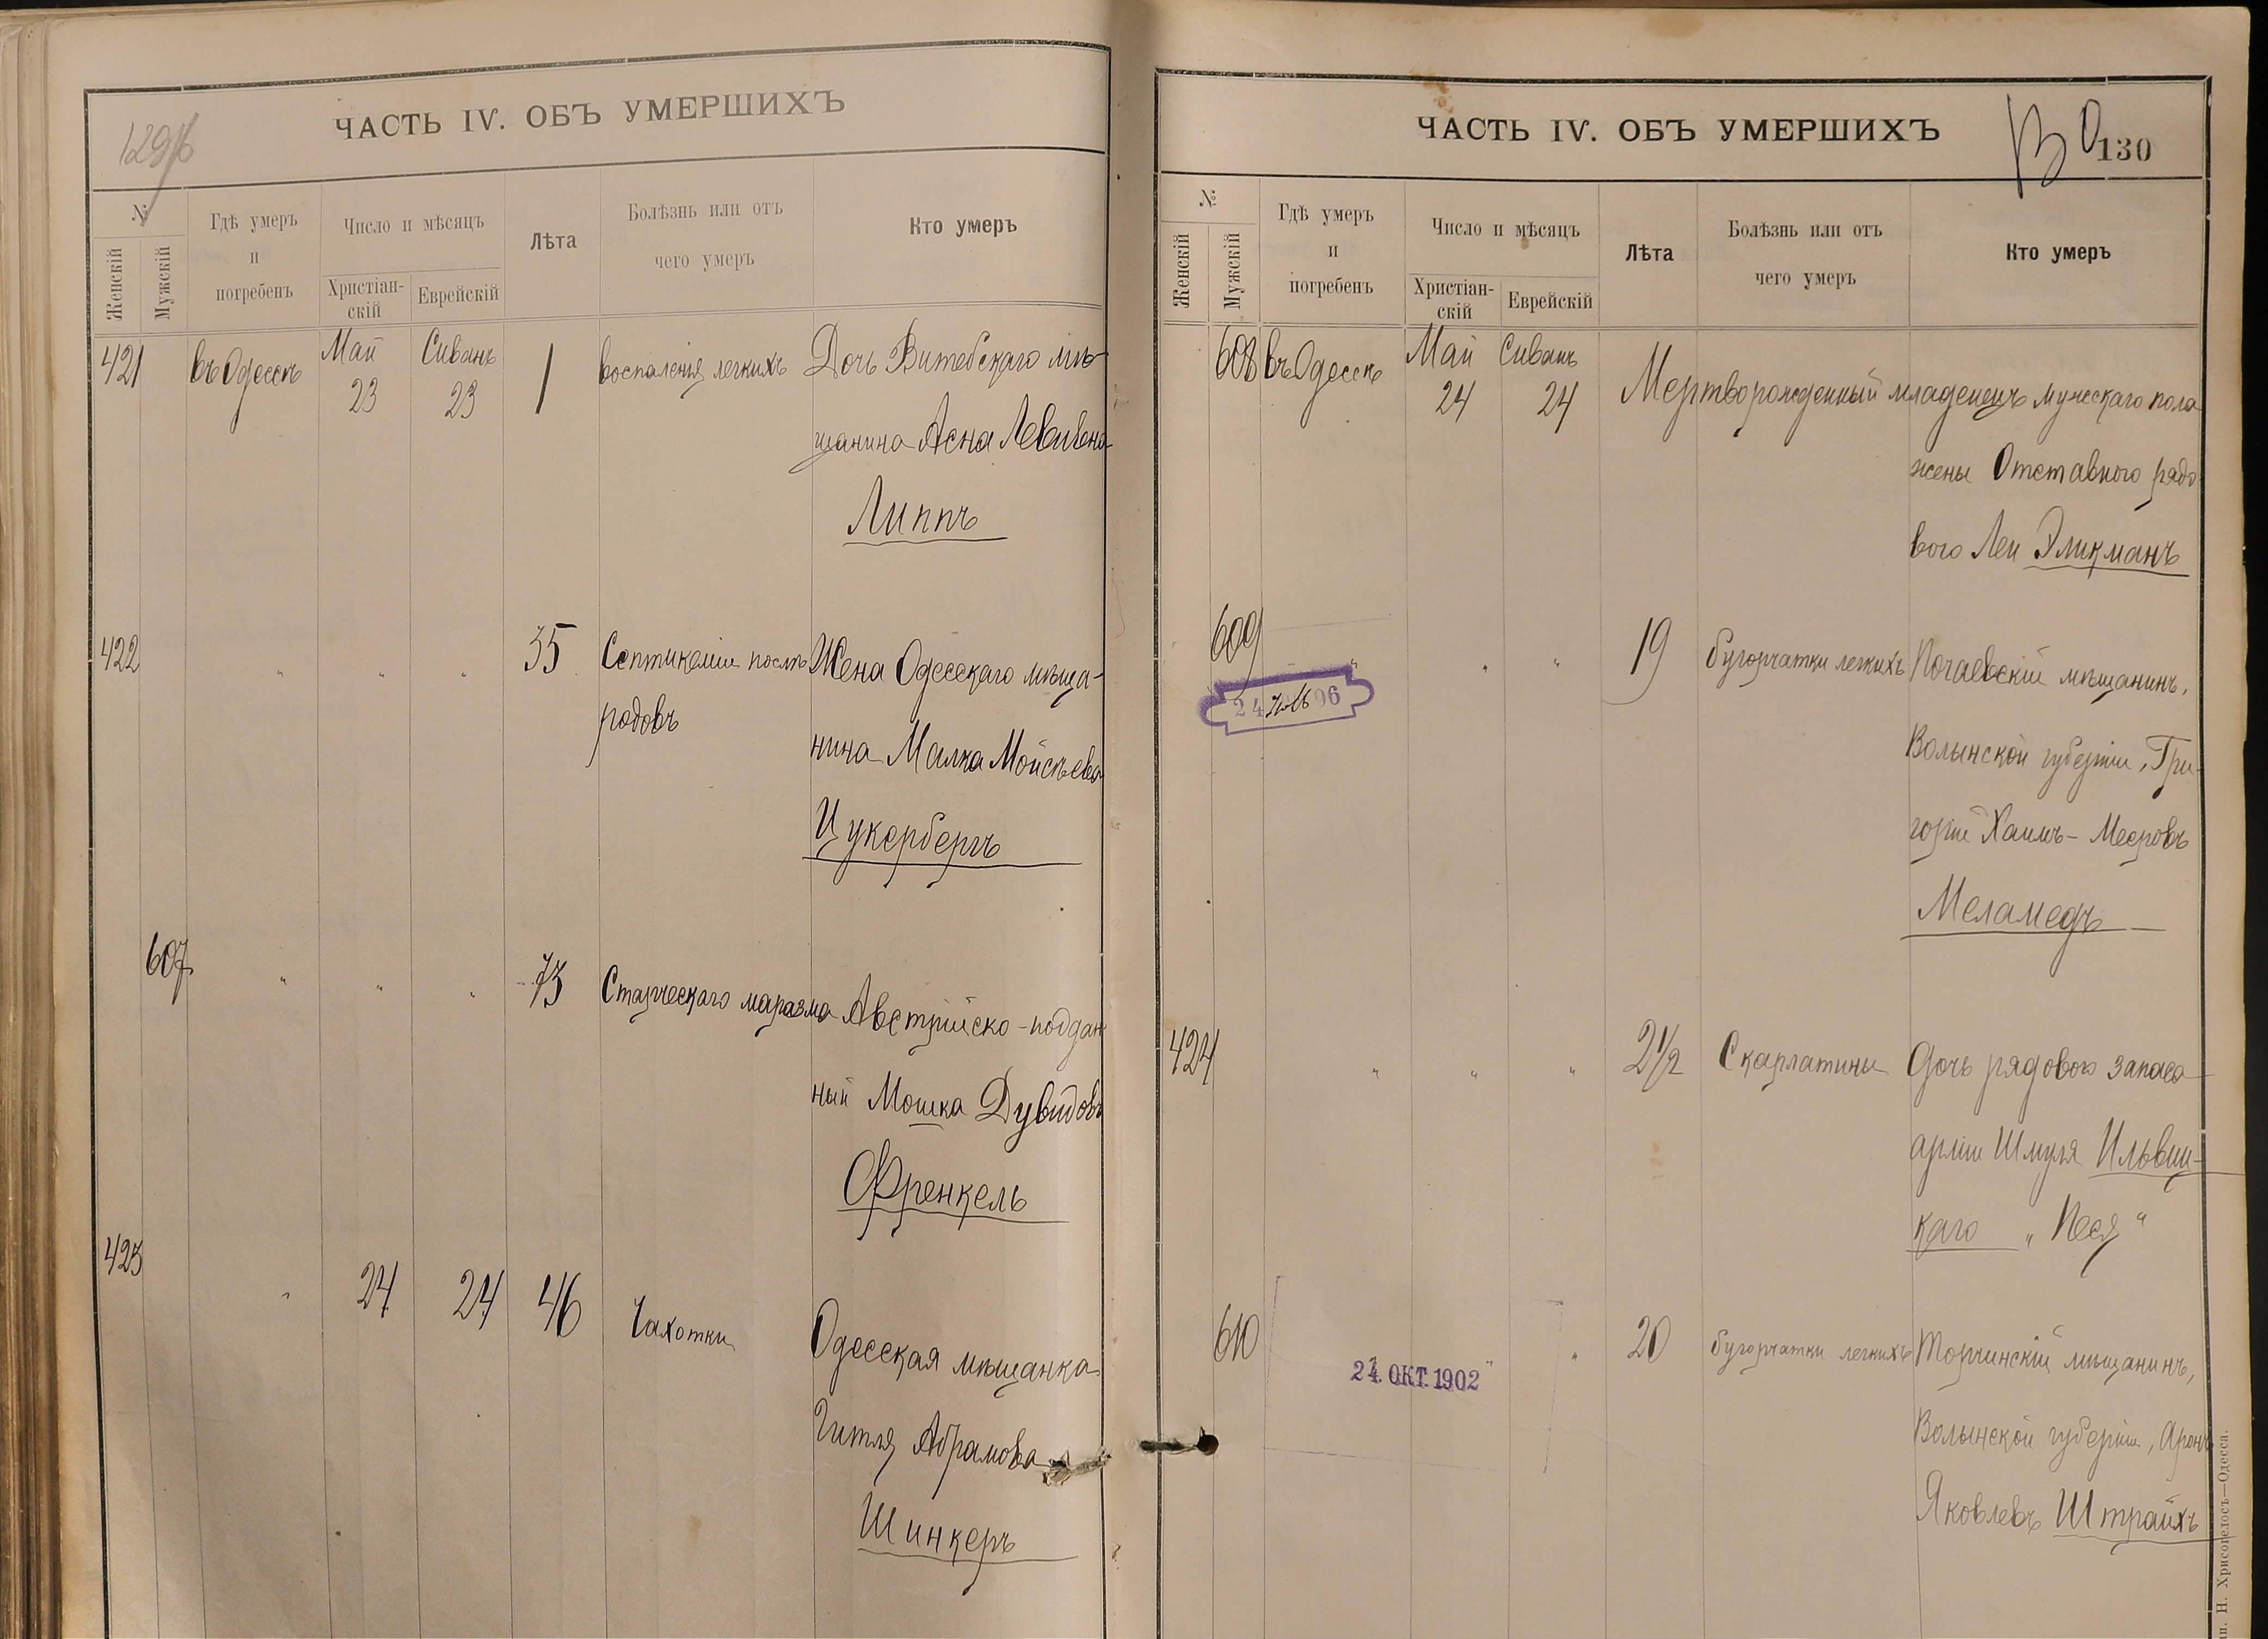 129б
ЧАСТЬ IV. ОБЪ УМЕРШИХЪ
№
Женскій
Мужскій
Гдѣ умеръ
и
погребенъ
Число и мѣсяцъ
Христіан-
скій
Еврейскій
Лѣта
Болѣзнь или отъ
чего умеръ
Кто умеръ
421 въ Одессѣ Май 23 Сиванъ 23 1 воспаленія легкихъ Дочь Витебскаго мѣ-
щанина Асна Левибена
Липпъ
422 " " " 35 Септикеміи послѣ Жена Одесскаго мѣща-
родовъ нина Малка Мойсѣева
Цукербергъ
607 " " " 73 Старческаго маразма Австрійско-поддан
ный Мошка Дувидовъ
Френкель
423 " 24 24 46 Чахотки Одесская мѣщанка
Гитля Абрамова
Шинкеръ
ЧАСТЬ IV. ОБЪ УМЕРШИХЪ
130
130
№
Женскій
Мужскій
Гдѣ умеръ
и
погребенъ
Число и мѣсяцъ
Христіан-
скій
Еврейскій
Лѣта
Болѣзнь или отъ
чего умеръ
Кто умеръ
608 въ Одессѣ Май 24 Сиванъ 24 Мертворожденный младенецъ мужскаго пола
жены Отставного рядо
вого Леи Эликманъ
609 " " " 19 бугорчатки легкихъ Почаевскій мѣщанинъ,
24 96
Волынской губерніи, Гри-
горій Хаимъ-Мееровъ
Меламедъ
424 " " " 2 1/2 Скарлатины Дочь рядового запаса
арміи Шмуля Ильвиц-
каго „Песя“
610 " " 20 бугорчатки легкихъ Торчинскій мѣщанинъ,
24. ОКТ. 1902
Волынской губерніи, Аронъ
Яковлевъ Штрайхъ
Н. Хрисогелосъ—Одесса.